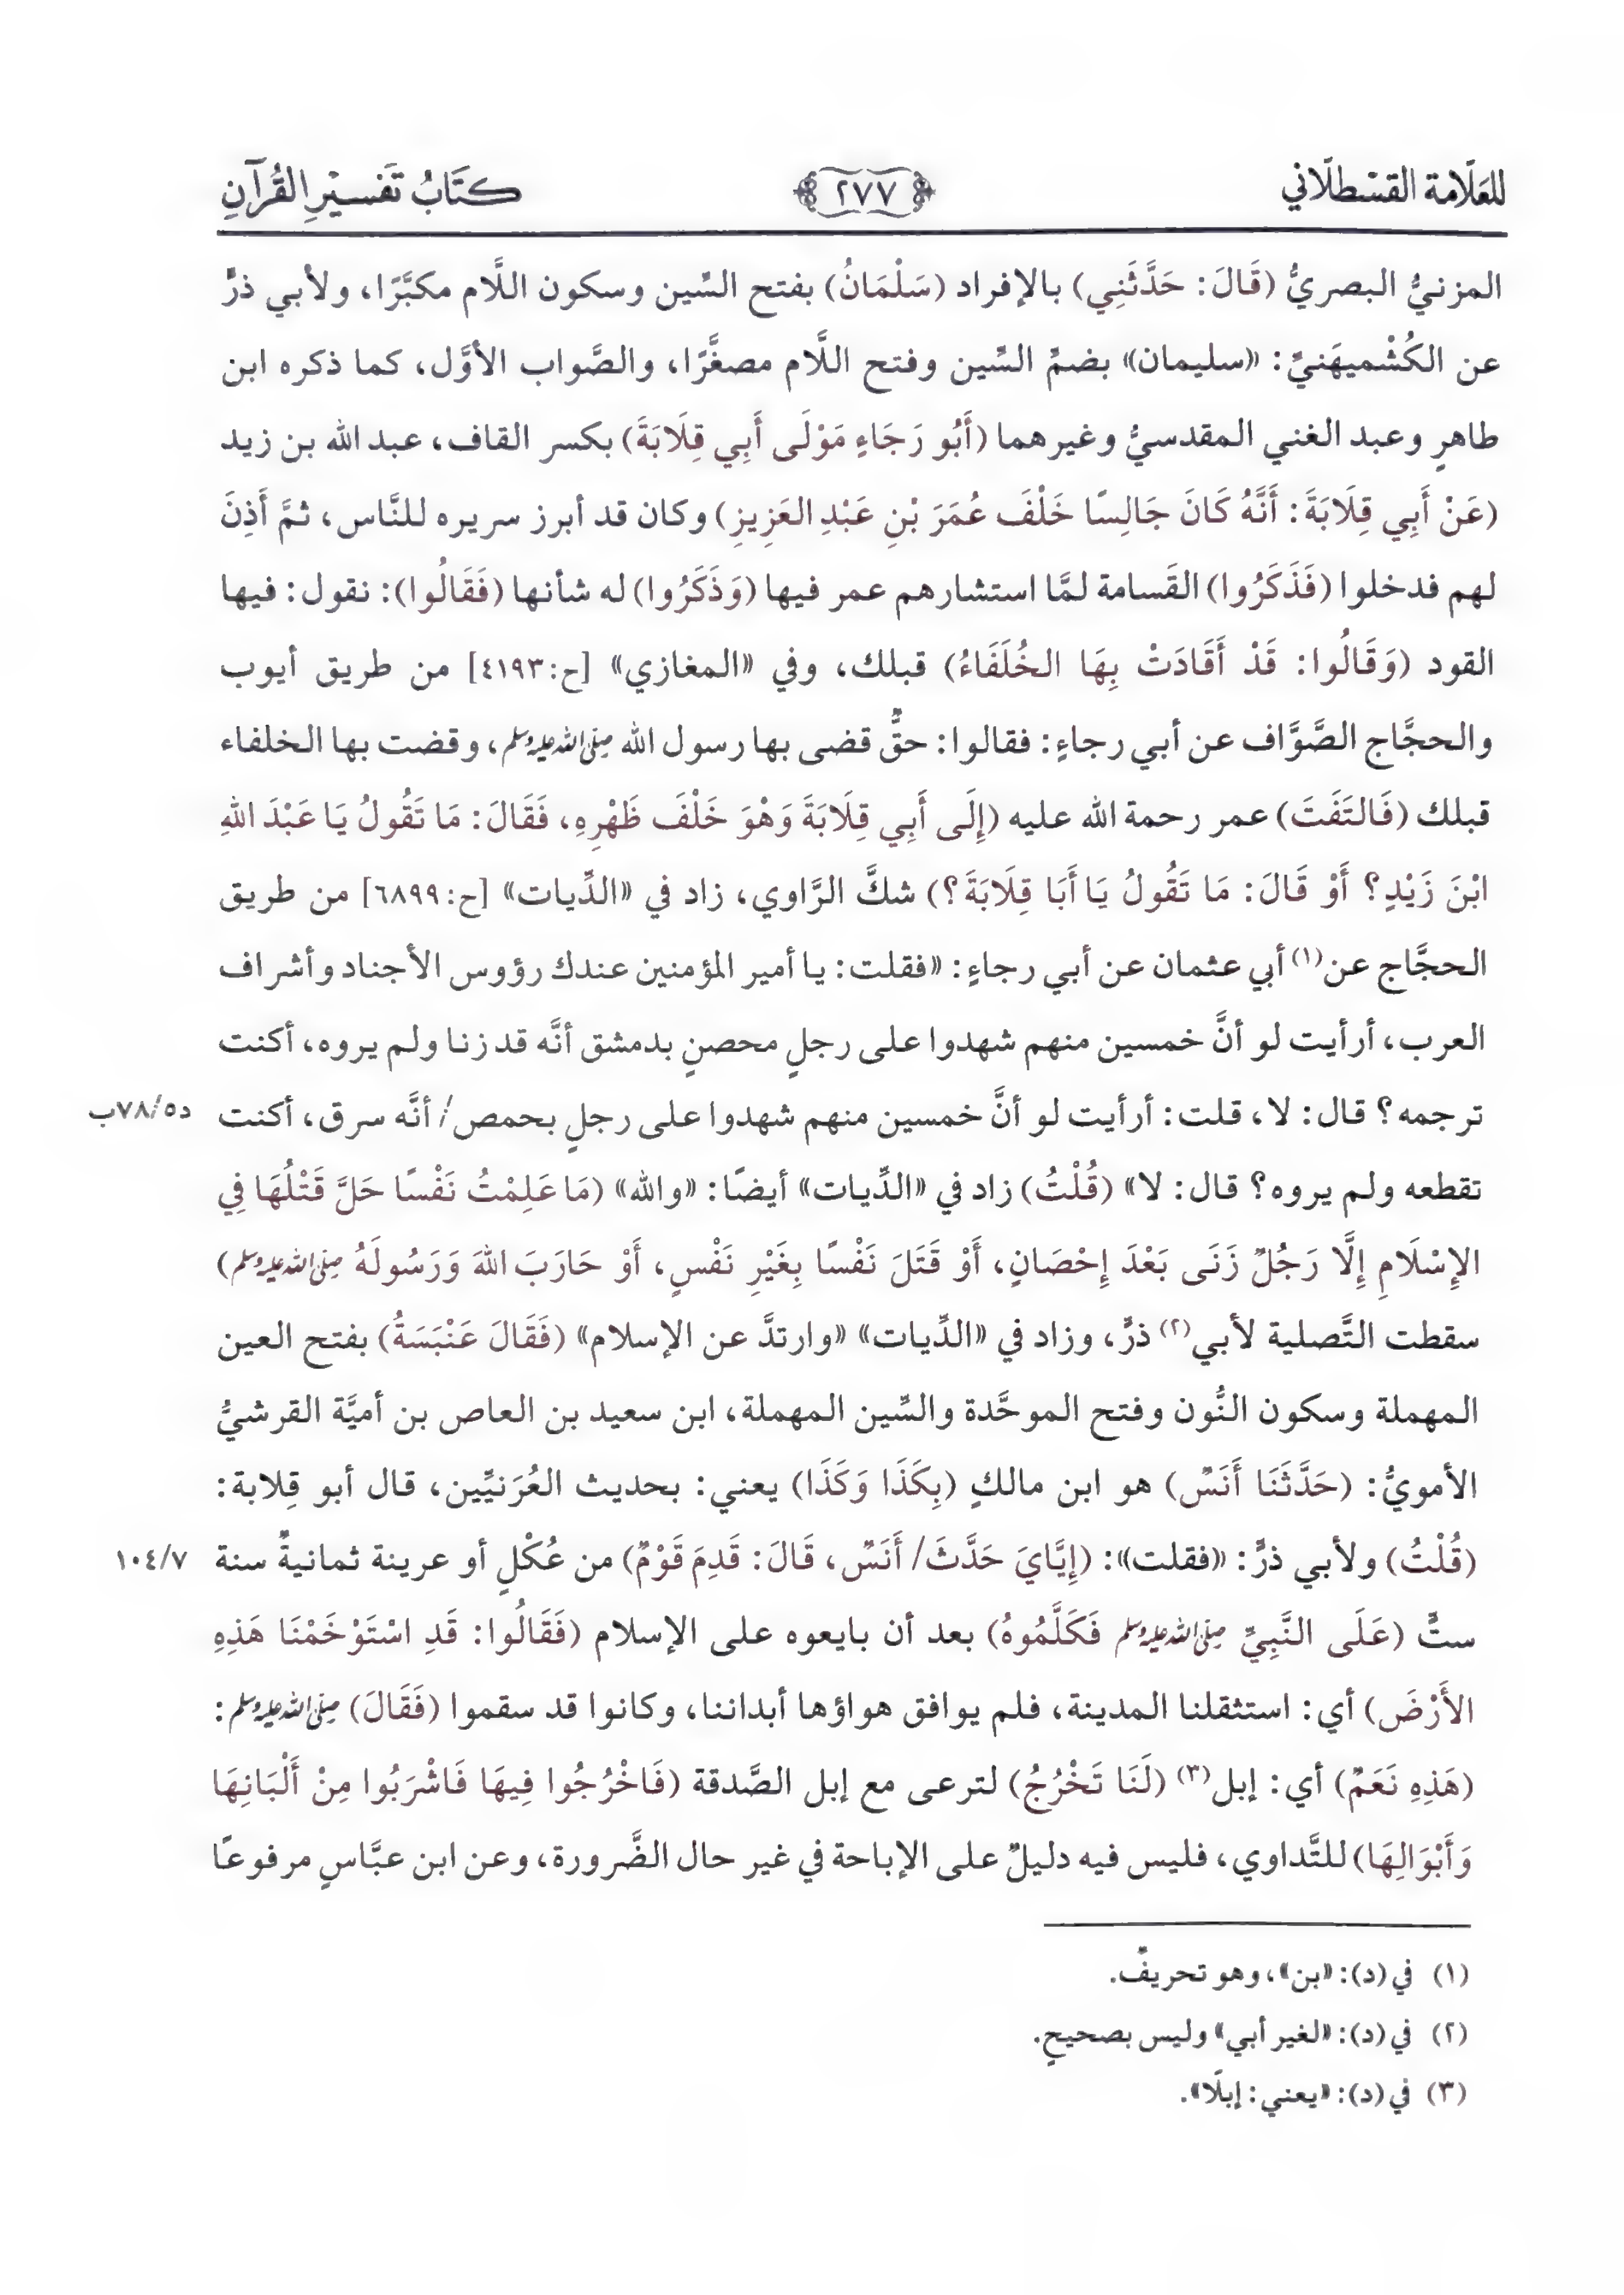 للعلّامة القسْطلّاني ٢٧٧ كتَابُ تَفسيْرِ القُرآنِ
المزنيُّ البصريُّ (قَالَ: حَدَّثَنِي) بالإفراد (سَلْمَانُ) بفتح السِّين وسكون اللَّام مكبَّرًا، ولأبي ذرٍّ
عن الكُشْميهَنيِّ: «سليمان» بضمِّ السِّين وفتح اللَّام مصغَّرًا، والصَّواب الأوَّل، كما ذكره ابن
طاهرٍ وعبد الغني المقدسيُّ وغيرهما (أَبُو رَجَاءٍ مَوْلَى أَبِي قِلَابَةَ) بكسر القاف، عبد الله بن زيد
(عَنْ أَبِي قِلَابَةَ: أَنَّهُ كَانَ جَالِسًا خَلْفَ عُمَرَ بْنِ عَبْدِ العَزِيزِ) وكان قد أبرز سريره للنَّاس، ثمَّ أَذِنَ
لهم فدخلوا (فَذَكَرُوا) القَسامة لمَّا استشارهم عمر فيها (وَذَكَرُوا) له شأنها (فَقَالُوا): نقول: فيها
القود (وَقَالُوا: قَدْ أَقَادَتْ بِهَا الخُلَفَاءُ) قبلك، وفي «المغازي» [ح:٤١٩٣] من طريق أيوب
والحجَّاج الصَّوَّاف عن أبي رجاءٍ: فقالوا: حقٌّ قضى بها رسول الله صلى الله عليه وسلم، وقضت بها الخلفاء
قبلك (فَالتَفَتَ) عمر رحمة الله عليه (إِلَى أَبِي قِلَابَةَ وَهْوَ خَلْفَ ظَهْرِهِ، فَقَالَ: مَا تَقُولُ يَا عَبْدَ اللهِ
ابْنَ زَيْدٍ؟ أَوْ قَالَ: مَا تَقُولُ يَا أَبَا قِلَابَةَ؟) شكَّ الرَّاوي، زاد في «الدِّيات» [ح:٦٨٩٩] من طريق
الحجَّاج عن(١) أبي عثمان عن أبي رجاءٍ: «فقلت: يا أمير المؤمنين عندك رؤوس الأجناد وأشراف
العرب، أرأيت لو أنَّ خمسين منهم شهدوا على رجلٍ محصنٍ بدمشق أنَّه قد زنا ولم يروه، أكنت
ترجمه؟ قال: لا، قلت: أرأيت لو أنَّ خمسين منهم شهدوا على رجلٍ بحمص/ أنَّه سرق، أكنت د٧٨/٥ب
تقطعه ولم يروه؟ قال: لا» (قُلْتُ) زاد في «الدِّيات» أيضًا: «والله» (مَا عَلِمْتُ نَفْسًا حَلَّ قَتْلُهَا فِي
الإِسْلَامِ إِلَّا رَجُلٌ زَنَى بَعْدَ إِحْصَانٍ، أَوْ قَتَلَ نَفْسًا بِغَيْرِ نَفْسٍ، أَوْ حَارَبَ اللهَ وَرَسُولَهُ صلى الله عليه وسلم)
سقطت التَّصلية لأبي(٢) ذرٍّ، وزاد في «الدِّيات» «وارتدَّ عن الإسلام» (فَقَالَ عَنْبَسَةُ) بفتح العين
المهملة وسكون النُّون وفتح الموحَّدة والسِّين المهملة، ابن سعيد بن العاص بن أميَّة القرشيُّ
الأمويُّ: (حَدَّثَنَا أَنَسٌ) هو ابن مالكٍ (بِكَذَا وَكَذَا) يعني: بحديث العُرَنيِّين، قال أبو قِلابة:
(قُلْتُ) ولأبي ذرٍّ: «فقلت»: (إِيَّايَ حَدَّثَ/ أَنَسٌ، قَالَ: قَدِمَ قَوْمٌ) من عُكْلٍ أو عرينة ثمانيةٌ سنة ١٠٤/٧
ستٍّ (عَلَى النَّبِيِّ صلى الله عليه وسلم فَكَلَّمُوهُ) بعد أن بايعوه على الإسلام (فَقَالُوا: قَدِ اسْتَوْخَمْنَا هَذِهِ
الأَرْضَ) أي: استثقلنا المدينة، فلم يوافق هواؤها أبداننا، وكانوا قد سقموا (فَقَالَ) صلى الله عليه وسلم:
(هَذِهِ نَعَمٌ) أي: إبل(٣) (لَنَا تَخْرُجُ) لترعى مع إبل الصَّدقة (فَاخْرُجُوا فِيهَا فَاشْرَبُوا مِنْ أَلْبَانِهَا
وَأَبْوَالِهَا) للتَّداوي، فليس فيه دليلٌ على الإباحة في غير حال الضَّرورة، وعن ابن عبَّاسٍ مرفوعًا
(١) في (د): «بن»، وهو تحريفٌ.
(٢) في (د): «لغير أبي» وليس بصحيحٍ.
(٣) في (د): «يعني: إبلًا».